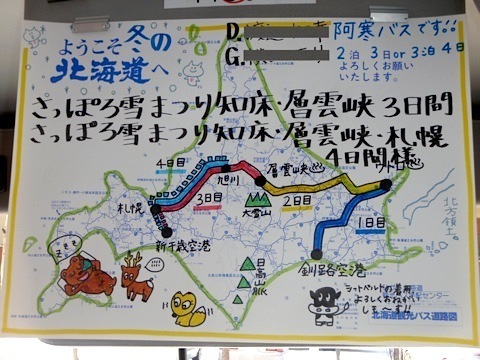 ようこそ冬の
北海道へ
D.
G.
阿寒バスです!!
2泊3日or3泊4日
よろしくお願い
いたします。
さっぽろ雪まつり知床・層雲峡3日間
さっぽろ雪まつり知床・層雲峡・札幌
4日間様
ウトロ
4日目
旭川
層雲峡
3日目
2日目
大雪山
札幌
新千歳空港
1日目
北方領土
日高山脈
釧路空港
シートベルトの着用
よろしくおねがい
しま〜す!!
北海道観光バス道路図